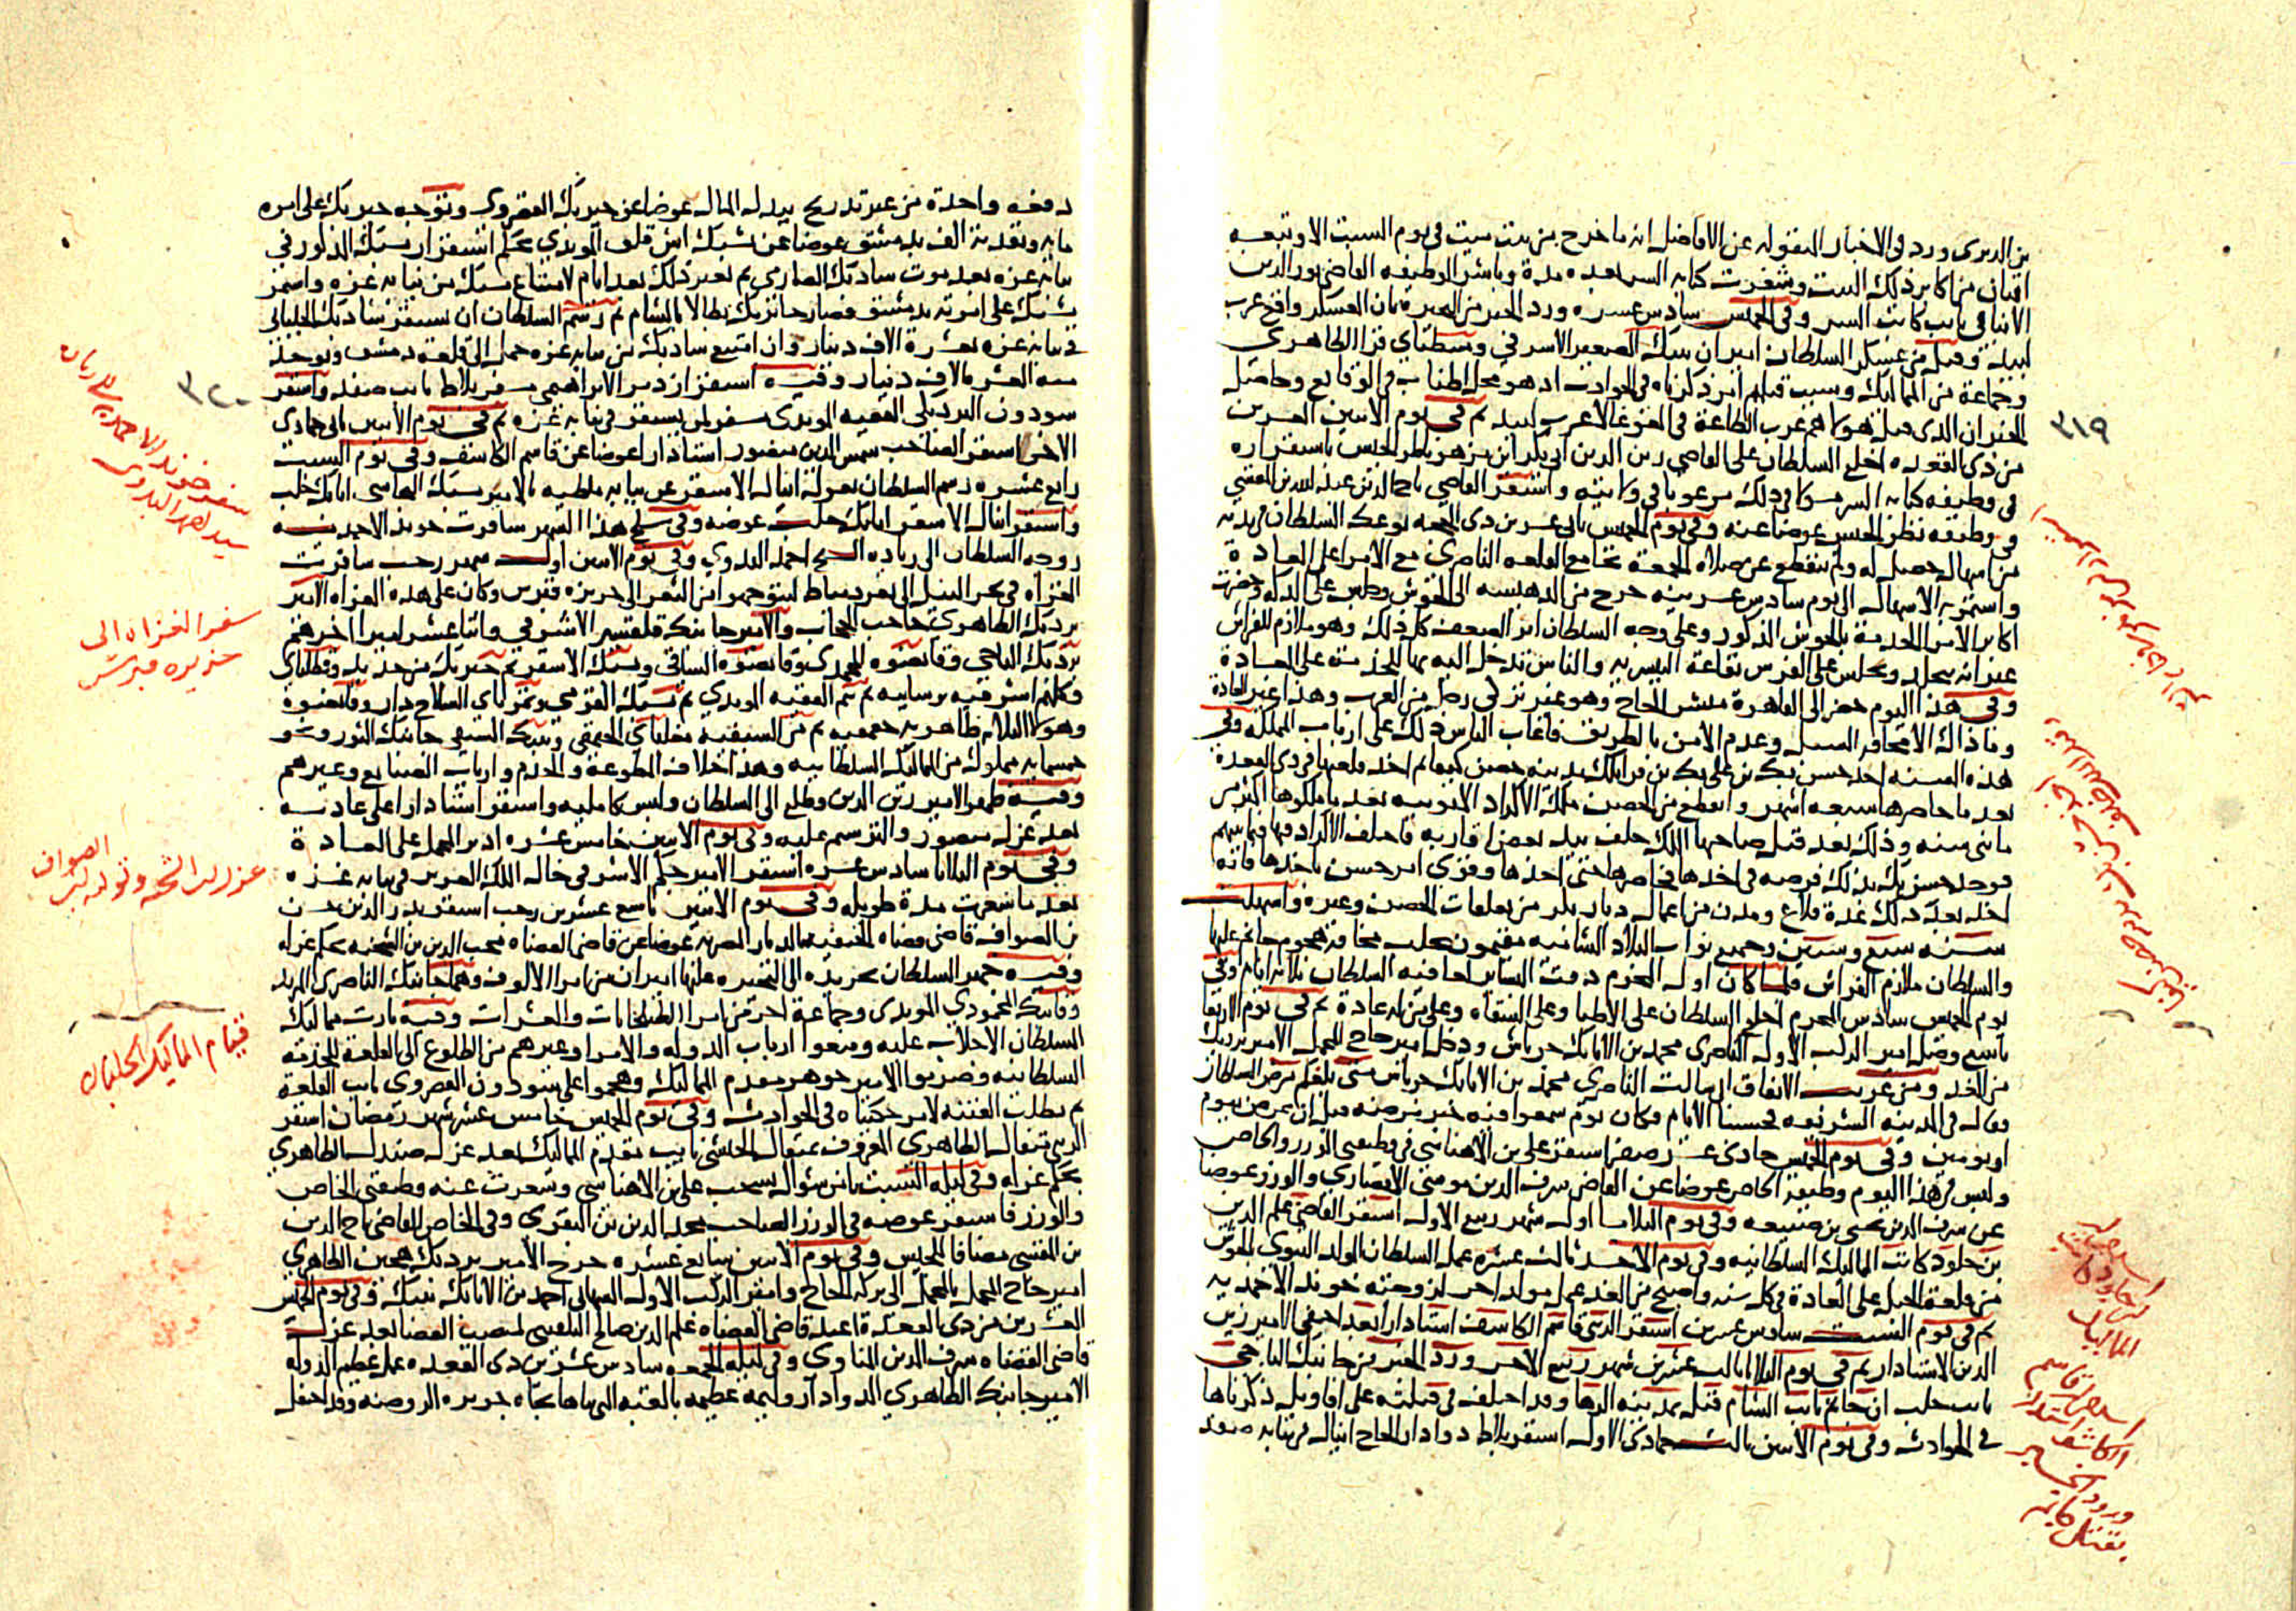 من الديري ورد في الاخبار المنقوله عن الافاضل انه ما خرج من بيت ميت في يوم السبت الا وتبعه
اثنان من اكابر ذلك البيت وشغرت كتابه السر بعده مدة وباشر الوظيفه القاضي نور الدين
الانبابي نايب كاتب السر وفي الخميس سادس عشره ورد الخبر من البحيرة بان العسكر واقع عرب
لبيد وقتل من عسكر السلطان اميران بيبك الصغير الاشرفي وسنطباي قرا الظاهري
وجماعة من المماليك وسبب قتلهم امر ذكرناه في الحوادث اذ هو محل اطناب في الوقايع وحاصل
الخبر ان الذي قتله هولاهم عرب الطاعة في الغوغا لا عرب لبيد ثم في يوم الاثنين العشرين
من ذي القعده اخلع السلطان على القاضي زين الدين ابي بكر ابن مزهر ناظر الجيش باستقراره
في وظيفه كتابه السر مسؤولا في ذلك مرغوبا في ولايته واستقر القاضي تاج الدين عبد الله بن المقسي
في وظيفه نظر الجيش عوضا عنه وفي يوم الخميس ثاني عشرين ذي الحجه توعك السلطان في بدنه
من اسهال حصل له ولم ينقطع عن صلاة الجمعة بجامع القلعه الناصري مع الامرا على العادة
واستمر به الاسهال الى يوم سادس عشرينه خرج من الدهيشه الى الحوش وجلس على الدكه وحضرت
اكابر الامرا الخدمة بالحوش المذكور وعلى وجه السلطان اثر الضعف كل ذلك وهو ملازم للفراش
غير انه يتجلد ويجلس على الفرش بقاعة البيسريه والناس تدخل اليه بها للخدمة على العادة
وفي هذا اليوم حضر الى القاهرة مبشر الحاج وهو غير تركي رجل من العرب وهذا غير العادة
وما ذاك الا لمخاوف السبل وعدم الامن بالطريق فاعاب الناس ذلك على ارباب المملكه وفي
هذه السنه اخذ حسن بك بن علي بك بن قرايلك مدينه حصن كيفا ثم اخذ قلعتها في ذي القعدة
بعد ما حاصرها سبعه اشهر وانقطع من الحصن مملكة الاكراد الايوبيه بعد ما ملكوها اكثر من
مايتي سنه وذلك بعد قتل صاحبها الملك خلف بيد بعض اقاربه فاختلف الاكراد فيما بينهم
فوجد حسن بك بذلك فرصه في اخذها فحاصرها حتى اخذها وقوي امر حسن باخذها فانه
اخذ بعد ذلك عدة قلاع ومدن من اعمال ديار بكر من تعلقات الحصن وغيره واستهلت
سنه سبع وستين وجميع نواب البلاد الشاميه مقيمون بحلب مخافة هجوم جانم عليها
والسلطان ملازم الفراش فلما كان اول المحرم دقت البشاير لعافيه السلطان ثلاثه ايام وفي
يوم الخميس سادس المحرم اخلع السلطان على الاطبا وعلى السقاه وعلى من له عادة ثم في يوم الاربعا
تاسع وصل امير الركب الاول الناصري محمد بن الاتابك جرباش ودخل امير حاج المحمل الامير بردبك
من الغد ومن غريب الاتفاق اني سالت الناصري محمد بن الاتابك جرباش متى بلغكم مرض السلطان
فقال في المدينه الشريفه فحسبنا الايام فكان يوم سمعوا فيه خبر مرضه قبل ان يمرض بيوم
او يومين وفي يوم الخميس حادي عشر صفر استقر علي بن الاهناسي في وظيفتي الوزر والخاص
ولبس في هذا اليوم وظيفة الخاص عوضا عن القاضي شرف الدين موسى الانصاري والوزر عوضا
عن شرف الدين يحيى بن صنيعه وفي يوم الثلاثا اول شهر ربيع الاول استقر القاضي علم الدين
بن جلود كاتب المماليك السلطانيه وفي يوم الاحد ثالث عشره عمل السلطان المولد النبوي بالحوش
من قلعة الجبل على العادة في كل سنه واصبح من الغد عمل مولدا اخر لزوجته خوند الاحمديه
ثم في يوم السبت سادس عشرين استقر الزيني قاسم الكاشف استادارا بعد اختفى الامير زين
الدين الاستادار ثم في يوم الثلاثا ثالث عشرين شهر ربيع الاخر ورد الخبر من جانبك التاجي
نايب حلب ان جانم نايب الشام قتل بمدينه الرها وقد اختلف في قتلته على اقاويل ذكرناها
في الحوادث وفي يوم الاثنين ثالث جمادى الاول استقر بلاط دوادار الحاج اينال في نيابه صفد
٣١٩
استقرار جلود كاتب المماليك
استقرار قاسم الكاشف استادار
ورود الخبر بقتل جانم
دفعه واحدة من غير تدريج ببذله المال عوضا عن خيربك القصروي وتوجه خيربك على امره
مايه وتقدمة الف بدمشق عوضا عن يشبك اش قلق المويدي بحكم استقرار يشبك المذكور في
نيابه غزه بعد موت شادبك الصارمي ثم تغير ذلك بعد ايام لامتناع يشبك من نيابه غزه واستمر
يشبك على امرته بدمشق فصار خيربك بطالا بالشام ثم رسم السلطان ان يستقر شادبك الجلباني
في نيابه غزه بعشرة الاف دينار وان امتنع شادبك من نيابه غزه حمل الى قلعه دمشق ويوخذ
منه العشره الاف دينار وفيه استقر ازدمر الابراهيمي مسفر بلاط نايب صفد واستقر
سودون البردبكي الفقيه المويدي مسفر لمن يستقر في نيابه غزه ثم في يوم الاثنين ثاني جمادى
الاخر استقر الصاحب شمس الدين منصور استادارا عوضا عن قاسم الكاشف وفي يوم السبت
رابع عشره رسم السلطان بعزل اينال الاشقر عن نيابه ملطيه بالامير يشبك البجاسي اتابك حلب
واستقر اينال الاشقر اتابك حلب عوضه وفي سلخ هذا الشهر سافرت خوند الاحمديه
زوجه السلطان الى زياره الشيخ احمد البدوي وفي يوم الاثنين اول شهر رجب سافرت
الغزاه في بحر النيل الى ثغر دمياط ليتوجهوا من الثغر الى جزيره قبرس وكان على هذه الغزاه الامير
بردبك الظاهري حاجب الحجاب والامير جانبك قلقسيز الاشرفي واثنا عشر اميرا اخر هم
بردبك التاجي وقانصوه المحمدي وقانصوه الساقي ويشبك الاشقر ثم خيربك من حديد وقطلباي
وكلهم اشرفيه برسبايه ثم تنم الفقيه المويدي ثم يشبك القرمي وتمرباي السلاح دار وقانصوه
وهولا الثلاثه ظاهريه جقمقيه ثم من السيفيه مغلباي الجقمقي وتنبك السيفي جانبك النور ونحو
خمسمايه مملوك من المماليك السلطانيه وهذا خلاف المطوعة والخدم وارباب الصنايع وغيرهم
وفيه ظهر الامير زين الدين وطلع الى السلطان ولبس كامليه واستقر استادارا على عادته
بعد عزل منصور والترسيم عليه وفي يوم الاثنين خامس عشره ادير المحمل على العادة
وفي يوم الثلاثا سادس عشره استقر الامير جكم الاشرفي خال الملك العزيز في نيابه غزه
بعد ما شغرت مدة طويله وفي يوم الاثنين تاسع عشرين رجب استقر بدر الدين حسن
بن الصواف قاضي قضاة الحنفيه بالديار المصريه عوضا عن قاضي القضاه محب الدين بن الشحنه بحكم عزله
وفيه جهز السلطان تجريده الى البحيره عليها اميران من امرا الالوف وهما جانبك الناصري المرتد
وقانبك المحمودي المويدي وجماعة اخر من امرا الطبلخانات والعشرات وفيه ثارت مماليك
السلطان الاجلاب عليه ومنعوا ارباب الدوله والامرا وغيرهم من الطلوع الى القلعة للخدمه
السلطانيه وضربوا الامير جوهر مقدم المماليك وهجموا على سودون القصروي نايب القلعة
ثم بطلت الفتنه لامر حكيناه في الحوادث وفي يوم الخميس خامس عشر شهر رمضان استقر
الزيني مثقال الظاهري المعروف بمثقال الحبشي نايب مقدم المماليك بعد عزل صندل الظاهري
بحكم عزله وفي ليله السبت ثامن شوال تسحب علي بن الاهناسي وشغرت عنه وظيفتي الخاص
والوزر فاستقر عوضه في الوزر الصاحب مجد الدين بن البقري وفي الخاص القاضي تاج الدين
بن المقسي مضافا للجيش وفي يوم الاثنين سابع عشره خرج الامير بردبك هجين الظاهري
امير حاج المحمل بالمحمل الى بركه الحاج وامير الركب الاول الشهابي احمد بن الاتابك تنبك وفي يوم الخميس
العشرين من ذي القعدة اعيد قاضي القضاه علم الدين صالح البلقيني لمنصب القضا بعد عزل
قاضي القضاه شرف الدين المناوي وفي ليله الجمعه سادس عشرين ذي القعده عمل عظيم الدوله
الامير جانبك الظاهري الدوادار وليمه عظيمه بالقبه التي بناها تجاه جزيره الروضه وقد احتفل
٣٢٠
سفر خوند الاحمديه الى زيارة سيدي احمد البدوي
سفر الغزاه الى جزيره قبرس
عزل ابن الشحنه وتوليه ابن الصواف
قيام المماليك الجلبان